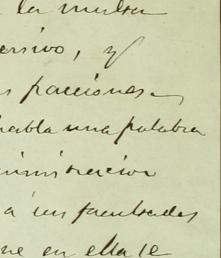 la multa
ersivo, y
s facciones
habla una palabra
ministracion
a sus facultades
ne en ella le